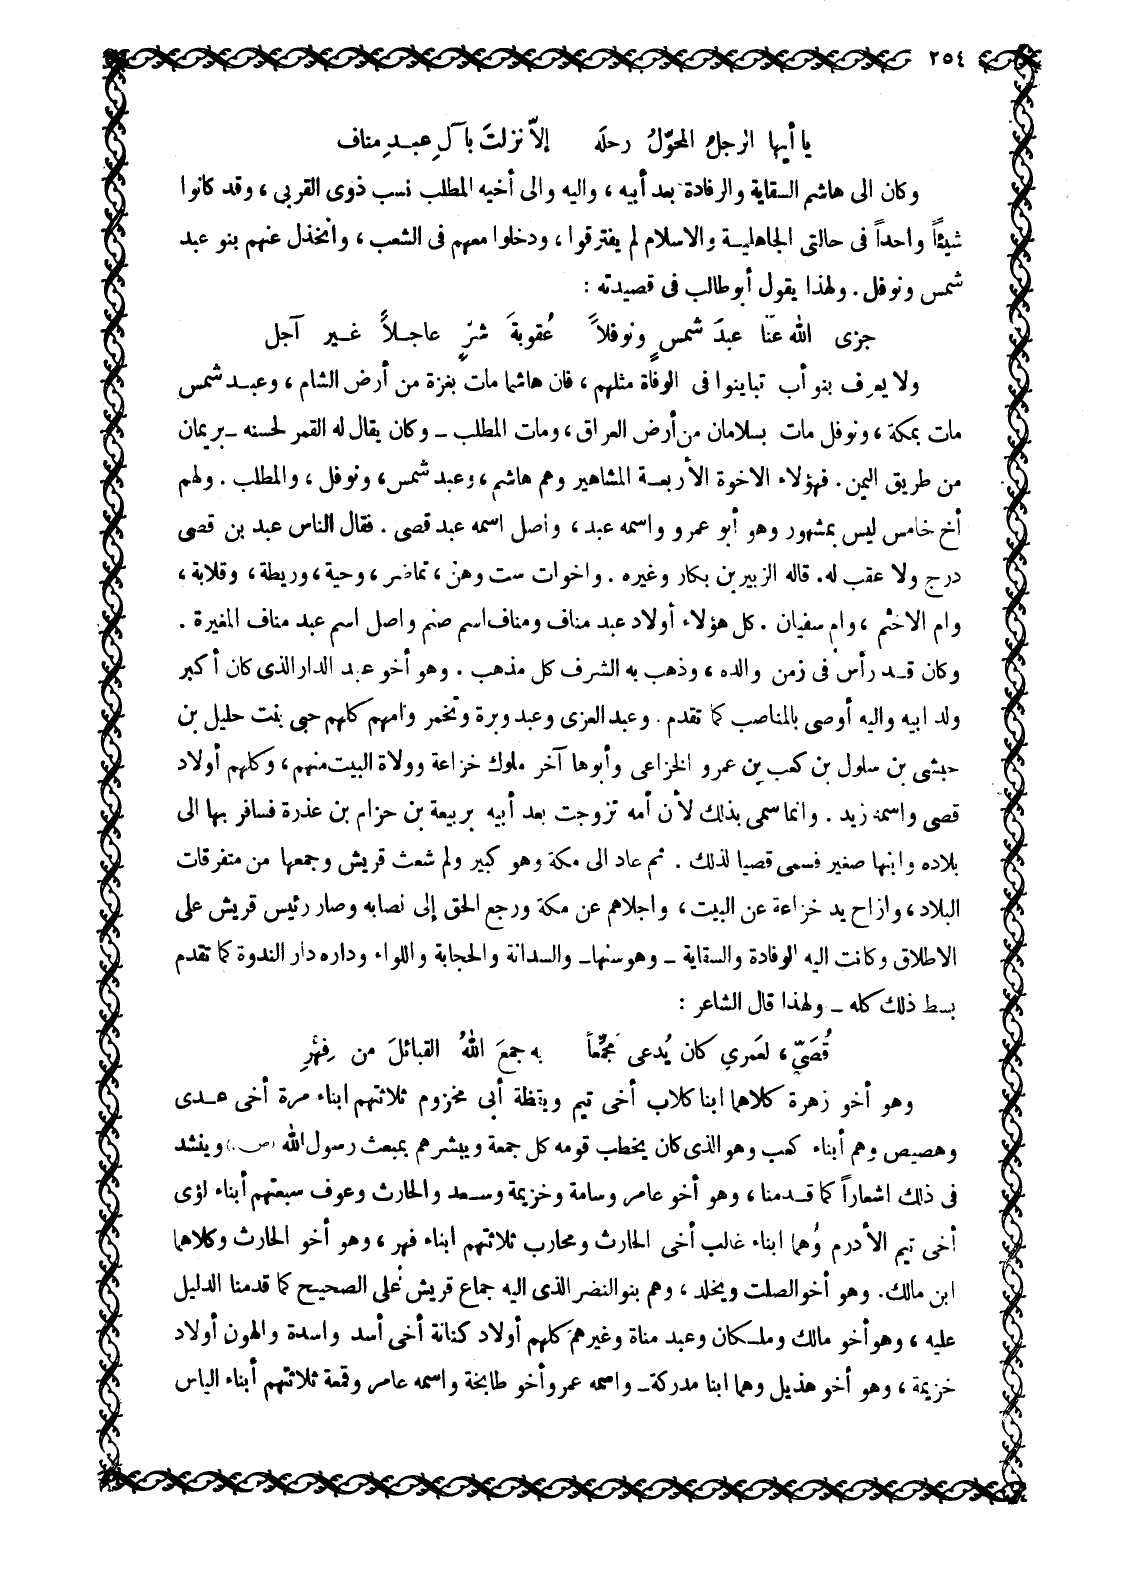 ٢٥٤
يا أيها الرجلُ المحوّلُ رحلَه إلاّ نزلتَ بآلِ عبدِ مناف
وكان الى هاشم السقاية والرفادة بعد أبيه ، واليه والى أخيه المطلب نسب ذوى القربى ، وقد كانوا
شيئاً واحداً فى حالتى الجاهلية والاسلام لم يفترقوا ، ودخلوا معهم فى الشعب ، وانخذل عنهم بنو عبد
شمس ونوفل . ولهذا يقول أبو طالب فى قصيدته :
جزى الله عنّا عبدَ شمسٍ ونوفلاً عُقوبةَ شرٍّ عاجلاً غير آجل
ولا يعرف بنو أب تباينوا فى الوفاة مثلهم ، فان هاشما مات بغزة من أرض الشام ، وعبد شمس
مات بمكة ، ونوفل مات بسلامان من أرض العراق ، ومات المطلب ــ وكان يقال له القمر لحسنه ــ بريمان
من طريق اليمن . فهؤلاء الاخوة الأربعة المشاهير وهم هاشم ، وعبد شمس ، ونوفل ، والمطلب . ولهم
أخ خامس ليس بمشهور وهو أبو عمرو واسمه عبد ، واصل اسمه عبد قصى . فقال الناس عبد بن قصى
درج ولا عقب له . قاله الزبير بن بكار وغيره . واخوات ست وهن ، تماضر ، وحية ، وريطة ، وقلابة ،
وام الاخثم ، وام سفيان . كل هؤلاء أولاد عبد مناف ومناف اسم صنم واصل اسم عبد مناف المغيرة .
وكان قد رأس فى زمن والده ، وذهب به الشرف كل مذهب . وهو أخو عبد الدار الذى كان أكبر
ولد ابيه واليه أوصى بالمناصب كما تقدم . وعبد العزى وعبد وبرة وتخمر وامهم كلهم حبى بنت حليل بن
حبشى بن سلول بن كعب بن عمرو الخزاعى وأبوها آخر ملوك خزاعة وولاة البيت منهم ، وكلهم أولاد
قصى واسمه زيد . وانما سمى بذلك لأن أمه تزوجت بعد أبيه بربيعة بن حزام بن عذرة فسافر بها الى
بلاده وابنها صغير فسمى قصيا لذلك . ثم عاد الى مكة وهو كبير ولم شعث قريش وجمعها من متفرقات
البلاد ، وازاح يد خزاعة عن البيت ، واجلاهم عن مكة ورجع الحق إلى نصابه وصار رئيس قريش على
الاطلاق وكانت اليه الوفادة والسقاية ــ وهو سنها ــ والسدانة والحجابة واللواء وداره دار الندوة كما تقدم
بسط ذلك كله ــ ولهذا قال الشاعر :
قُصَيّ ، لعَمري كان يُدعى مجمِّعاً به جمعَ اللهُ القبائلَ من فِهْرِ
وهو أخو زهرة كلاهما ابنا كلاب أخى تيم ويقظة أبى مخزوم ثلاثتهم ابناء مرة أخى عدى
وهصيص وهم أبناء كعب وهو الذى كان يخطب قومه كل جمعة ويبشرهم بمبعث رسول الله (ص.) وينشد
فى ذلك اشعاراً كما قدمنا ، وهو أخو عامر وسامة وخزيمة وسعد والحارث وعوف سبعتهم أبناء لؤى
أخى تيم الأدرم وُهما ابناء غالب أخى الحارث ومحارب ثلاثتهم ابناء فهر ، وهو أخو الحارث وكلاهما
ابن مالك . وهو أخو الصلت ويخلد ، وهم بنو النضر الذى اليه جماع قريش على الصحيح كما قدمنا الدليل
عليه ، وهو أخو مالك وملكان وعبد مناة وغيرهم كلهم أولاد كنانة أخى أسد واسدة والهون أولاد
خزيمة ، وهو أخو هذيل وهما ابنا مدركة ــ واسمه عمرو أخو طابخة واسمه عامر وقمعة ثلاثتهم أبناء الياس